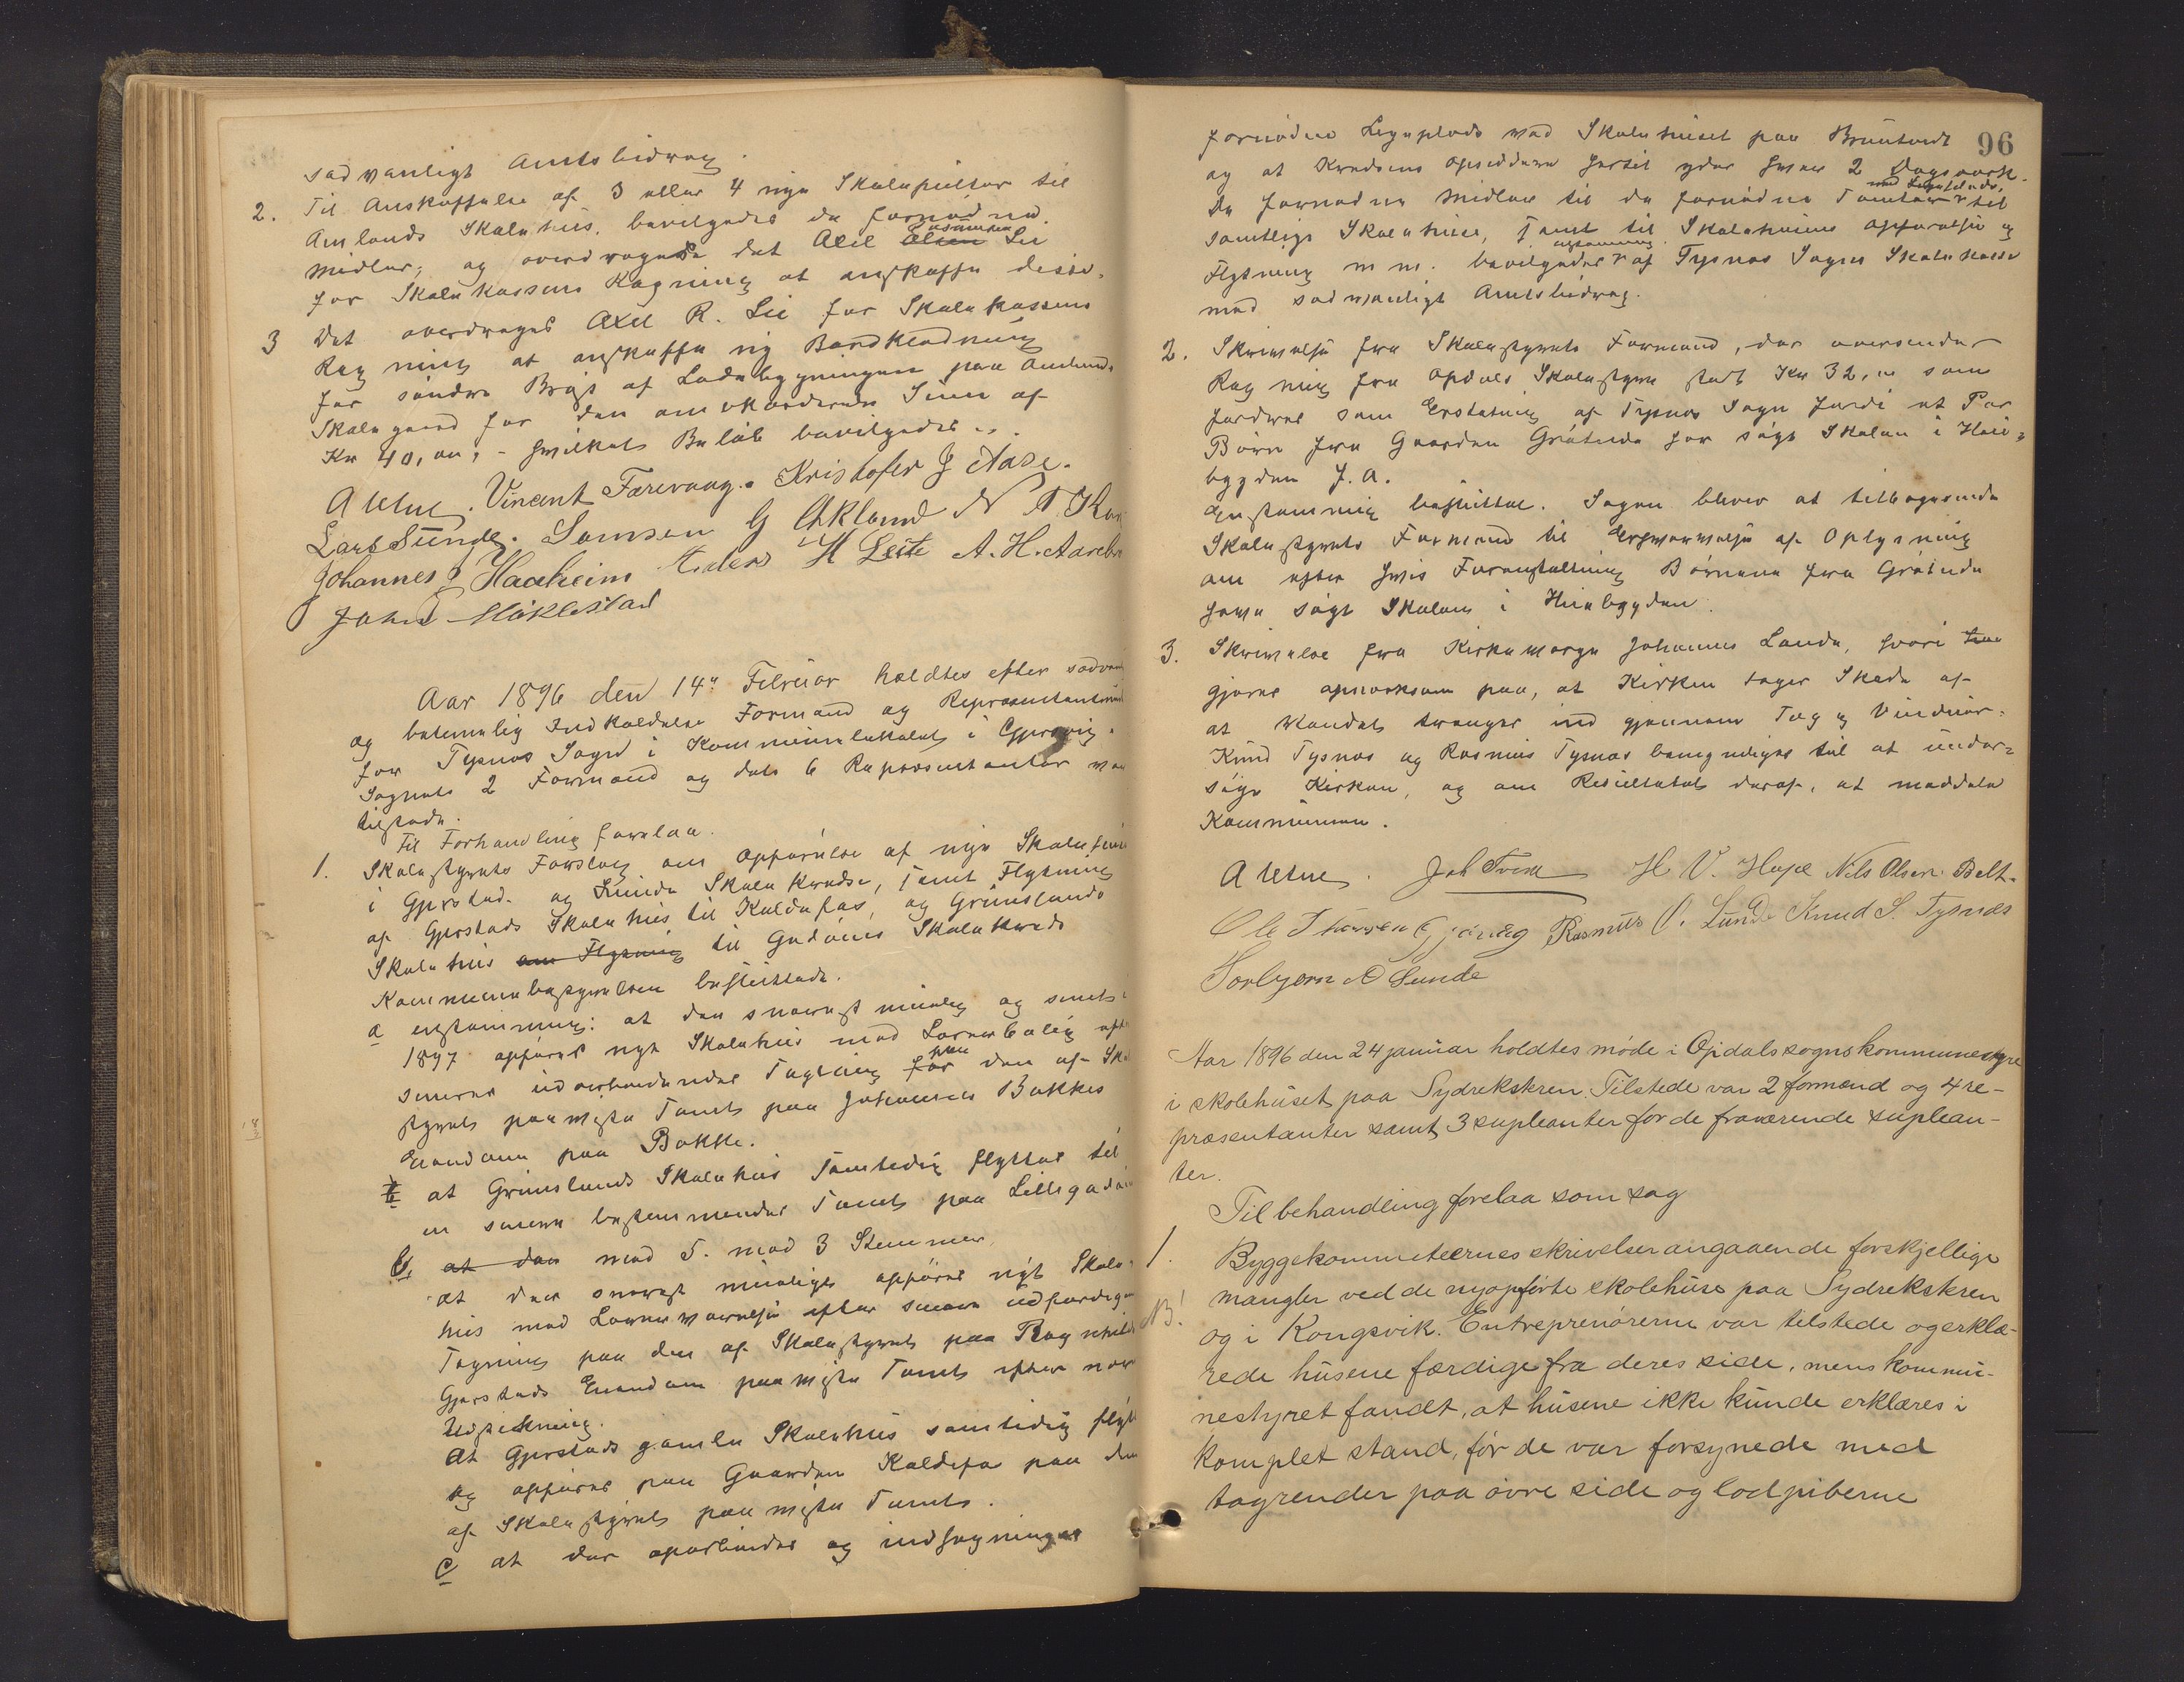 sedvanligt Amtsbidrag.
2. Til Anskaffelse af 3 eller 4 nye Skolepulter til
Amlands Skolehus, bevilgedes de fornødne
Midler, og overdroges det Axel Olsen Rasmussen Lie
for Skolekassens Regning at anskaffe disse.
3 Det overdroges Axel R. Lie for Skolekassens
Regning at anskaffe ny Bordklædning
for søndre Brøst af Ladebygningen paa Amlands
Skolegaard for den omakorderede Sum af
Kr 40,00, - hvilket Beløb bevilgedes
A Uttne. Vincent Færevaag. Kristofer J Aase.
Lars Sunde. Samson G Økland N T.
Johannes J Haaheim Anders H Leite A. H.
John Møklestad
Aar 1896 den 14de Februar holdtes efter sedvan
og betimelig Indkaldelse Formand og Repræsentantmøde
for Tysnes Sogn i Kommunelokalet i Gjersvig.
Sognets 2 Formænd og dets 6 Repræsentanter var
tilstede.
Til Forhandling forelaa.
1. Skolestyrets Forslag om Opførelse af nye Skolehuse
i Gjerstad og Lunde Skolekredse, samt Flytning
af Gjerstads Skolehus til Kaldefos, og Grimslands
Skolehus om Flytning til Godøens Skolekreds
Kommunebestyrelsen besluttede.
a enstemmig: at der snarest mulig og senest i
1897 opføres nyt Skolehus med Lærerbolig efter
senere udarbeidende Tegning for paa den af Skole
styrets paaviste Tomt paa Johannes Bakkes
Eiendom paa Bakke.
b at Grimslands Skolehus samtidig flyttes til
en senere bestemmende Tomt paa Lillegodøen
b, at den med 5. mod 3 Stemmer.
at der snarest muligt opføres nyt Skole-
hus med Lærerværelse efter senere udfærdiget
Tegning paa den af Skolestyrets paa Ragnhild
Gjerstads Eiendom paaviste Tomt efter nær
Udstikning.
At Gjerstads gamle Skolehus samtidig flyt
og opføres paa Gaarden Kaldefos paa den
af Skolestyrets paaviste Tomt.
c at der oparbeides og indhegninges
96
fornødne Legeplads ved Skolehuset paa Bruntvedt
og at Kredsens Opsiddere hertil yder hver 2 Dagsverk.
De fornødne Midler til de fornødne Tomter med Legeplads, til
samtlige Skolehuse, samt til Skolehusens Opførelse og
Flytning m m. bevilgedes enstemmig af Tysnes Sogns Skolekasse
med sedvanligt Amtsbidrag.
2. Skrivelse fra Skolestyrets Formand, der oversender
Regning fra Opdals Skolestyre stort Kr 32,00 som
fordres som Erstatning af Tysnes Sogn fordi at Par
Børn fra Gaarden Gråtnde har søgt Skolen i Hei-
bygden f. A.
Enstemmig besluttet. Sagen bliver at tilbagesende
Skolestyrets Formand til Erhvervelse af Oplysning
om efter hvis Foranstaltning Børnene fra
have søgt Skolen i Heiebygden.
3. Skrivelse fra Kirkeværge Johannes Lande, hvori
gjøres opmerksom paa, at Kirken tager Skade af
at Vandet trænger ind gjennem Tag og Vinduer.
Knud Tysnes og Rasmus Tysnes bemyndiges til at under-
søge Kirken, og om Resultatet deraf, at meddele
Kommunen.
A Uttne. Joh Tveit H V. Hope Nils Olsen Belt.
Ole Thorsen Gjøvaag Rasmus O. Lunde Knud S. Tysnes
Torbjørn A Sunde
Aar 1896 den 24 januar holdtes møde i Opdals sognskommunestyre
i skolehuset paa Sydrekskren. Tilstede var 2 formænd og 4 re-
præsentanter samt 3 supleanter for de fraværende suplean-
ter.
Til behandling forelaa som sag
1. Byggekommiteernes skrivelser angaaende forskjellige
mangler ved de nyopførte skolehuse paa Sydrekskren
NB! og i Kongsvik. Entreprenørerne var tilstede og erklæ-
rede husene færdige fra deres side, mens kommu-
nestyret fandt, at husene ikke kunde erklæres i
komplet stand, før de var forsynede med
tagrender paa øvre side og lodpiberne